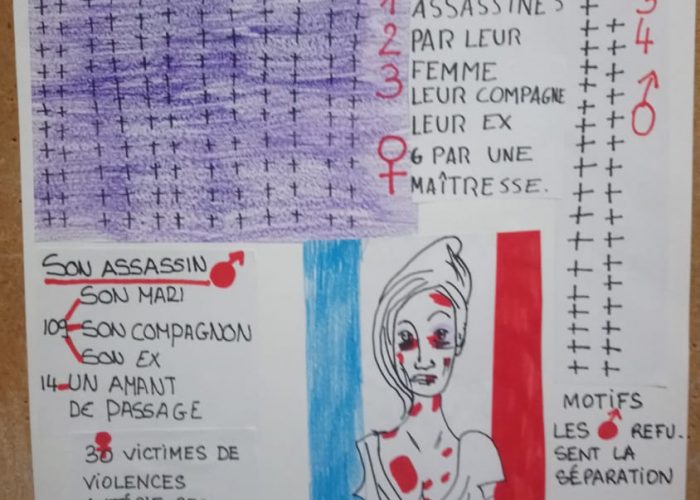 1
2
3
♀
ASSASSINÉS
PAR LEUR
FEMME
LEUR COMPAGNE
LEUR EX
6 PAR UNE
MAÎTRESSE.
3
4
♂
SON ASSASSIN ♂
SON MARI
109 SON COMPAGNON
SON EX
14 UN AMANT
DE PASSAGE
VICTIMES DE
VIOLENCES
MOTIFS
LES ♂ REFU.
SENT LA
SÉPARATION